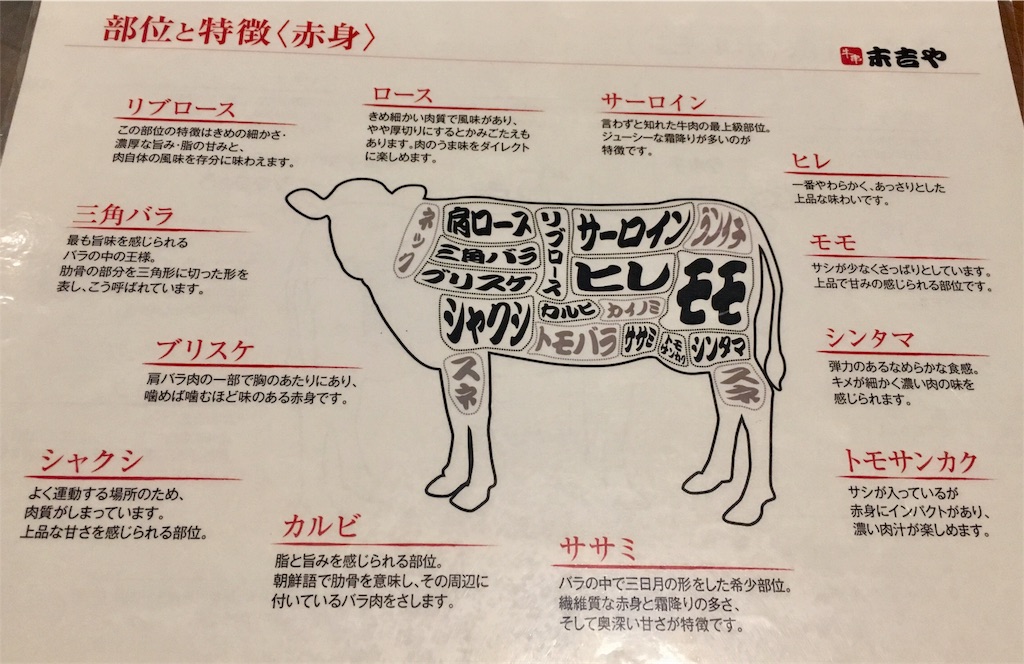 部位と特徴〈赤身〉
牛邸 末吉や
リブロース
この部位の特徴はきめの細かさ・
濃厚な旨み・脂の甘みと、
肉自体の風味を存分に味わえます。
ロース
きめ細かい肉質で風味があり、
やや厚切りにするとかみごたえも
あります。肉のうま味をダイレクト
に楽しめます。
サーロイン
言わずと知れた牛肉の最上級部位。
ジューシーな霜降りが多いのが
特徴です。
ヒレ
一番やわらかく、あっさりとした
上品な味わいです。
三角バラ
最も旨味を感じられる
バラの中の王様。
肋骨の部分を三角形に切った形を
表し、こう呼ばれています。
モモ
サシが少なくさっぱりとしています。
上品で甘みの感じられる部位です。
ネック
肩ロース
リブロース
サーロイン
ランイチ
三角バラ
ブリスケ
ヒレ
モモ
シャクシ
カルビ
カイノミ
トモバラ
ササミ
トモサンカク
シンタマ
スネ
スネ
ブリスケ
肩バラ肉の一部で胸のあたりにあり、
噛めば噛むほど味のある赤身です。
シンタマ
弾力のあるなめらかな食感。
キメが細かく濃い肉の味を
感じられます。
シャクシ
よく運動する場所のため、
肉質がしまっています。
上品な甘さを感じられる部位。
トモサンカク
サシが入っているが
赤身にインパクトがあり、
濃い肉汁が楽しめます。
カルビ
脂と旨みを感じられる部位。
朝鮮語で肋骨を意味し、その周辺に
付いているバラ肉をさします。
ササミ
バラの中で三日月の形をした希少部位。
繊維質な赤身と霜降りの多さ、
そして奥深い甘さが特徴です。